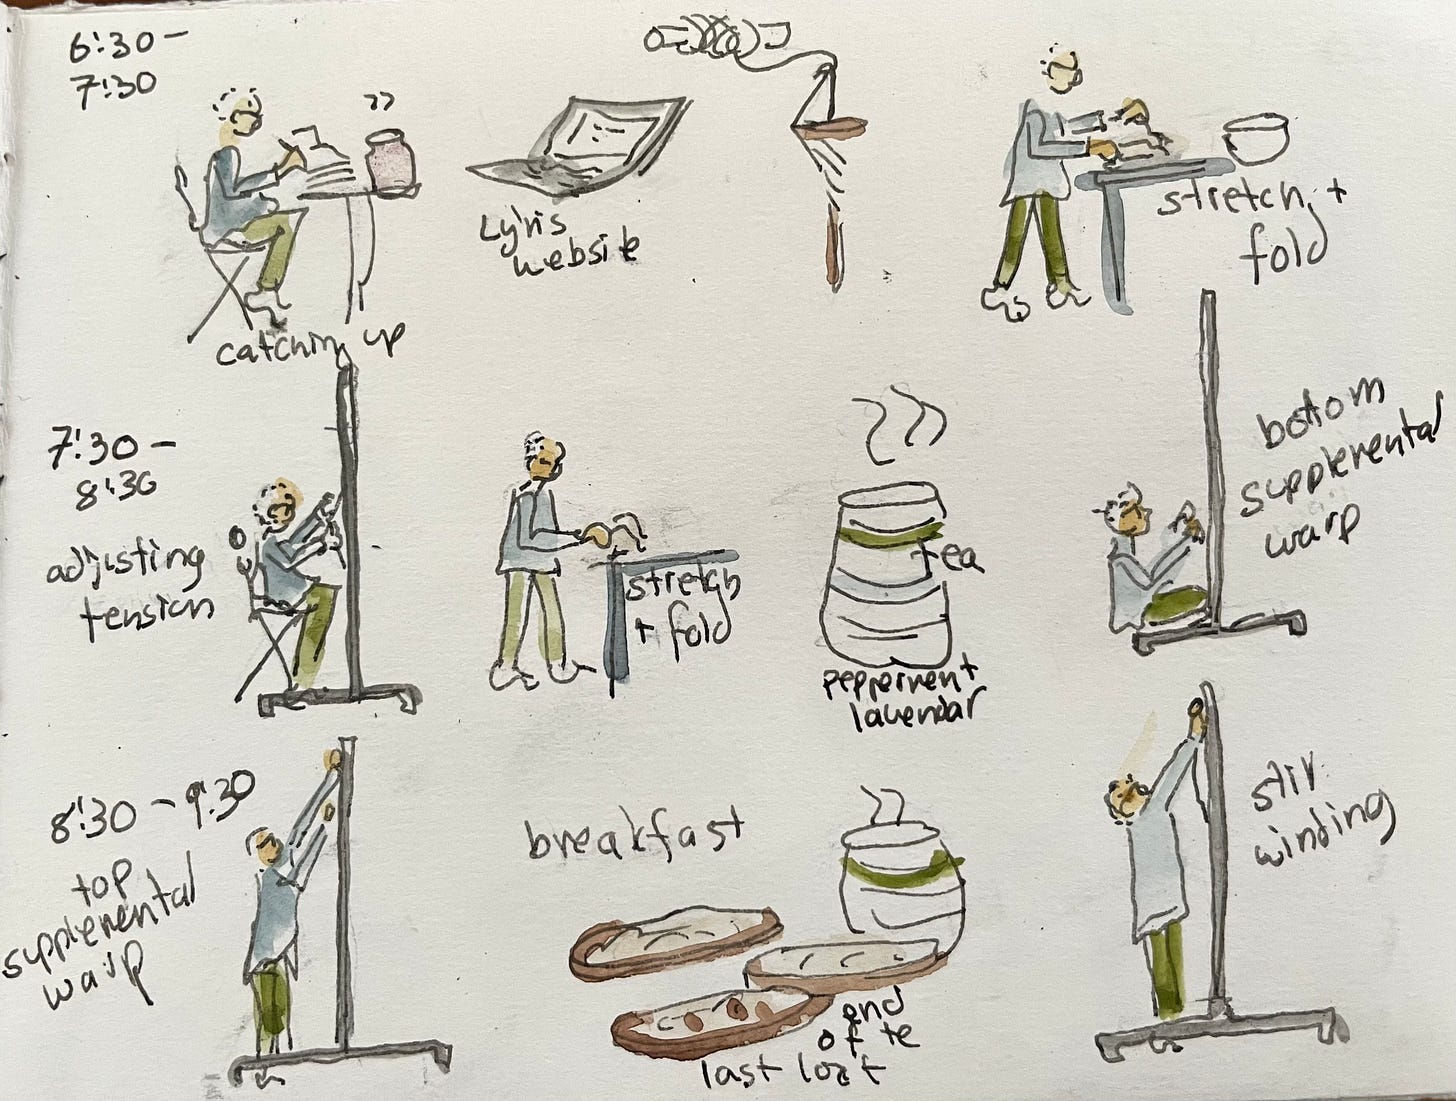 6:30 -
7:30
catching up
Lyn's
website
stretch +
fold
7:30 -
8:30
adjusting
tension
stretch
+ fold
tea
peppermint
lavendar
bottom
supplemental
warp
8:30 - 9:30
top
supplemental
warp
breakfast
end
of te
last loaf
still
winding